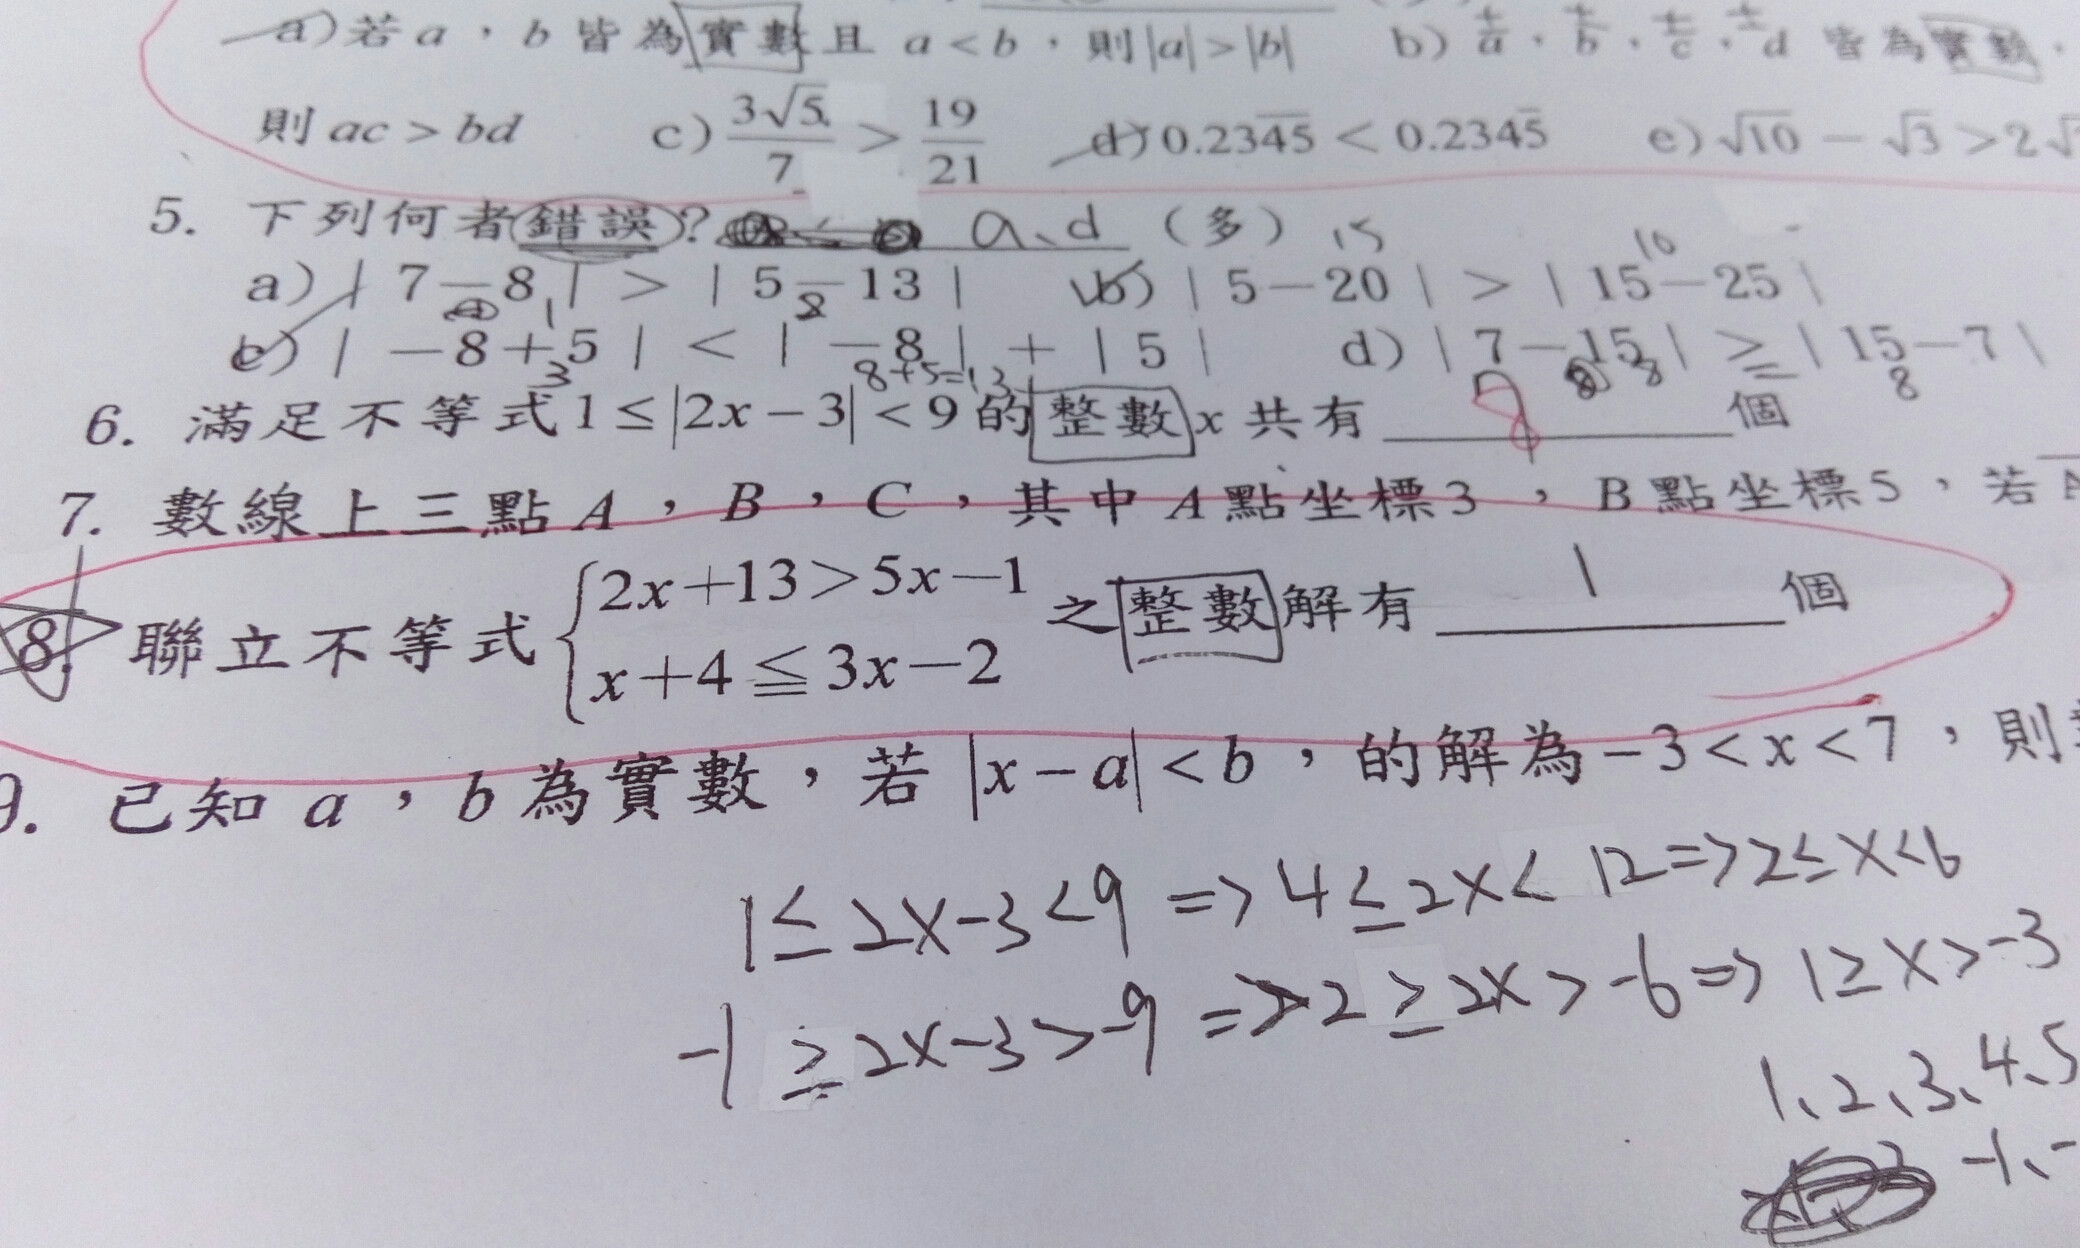 a)若a，b皆為實數且 a<b，則|a|>|b| b) a，b，c，d 皆為實數，
則ac>bd c) 3√5/7 > 19/21 d) 0.23\overline{45} < 0.234\overline{5} e) √10 − √3 > 2√
5. 下列何者錯誤? a、d (多)
15 10
a) | 7−8 | > | 5−13 | b) | 5−20 | > | 15−25 |
1 8
c) | −8+5 | < | −8 | + | 5 | d) | 7−15 | ≥ | 15−7 |
3 8+5=13 8 8
6. 滿足不等式1≤|2x−3|<9的整數x共有 8 個
7. 數線上三點A，B，C，其中A點坐標3，B點坐標5，若
8. 聯立不等式 { 2x+13>5x−1 之整數解有 1 個
x+4≦3x−2
9. 已知 a，b為實數，若 |x−a|<b，的解為−3<x<7，則
1≤2x-3<9 => 4≤2x<12 => 2≤x<6
-1≥2x-3>-9 => 2≥2x>-6 => 1≥x>-3
1、2、3、4、5
-1、-